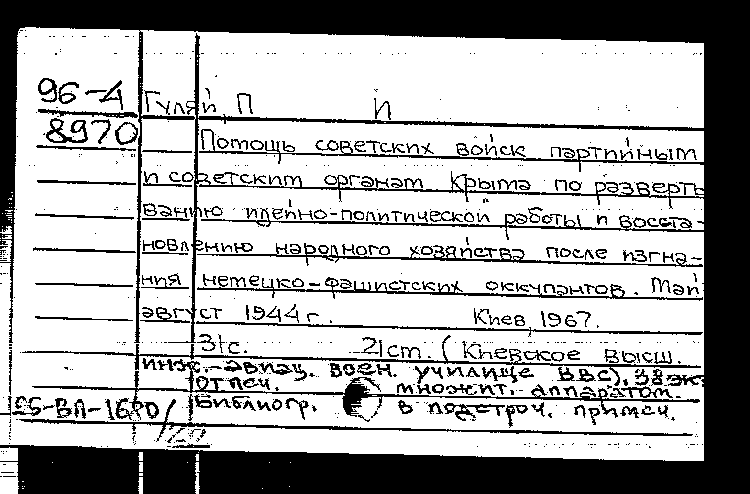 96-4 Гуляй, П И
8970 Потощь советских войск партийным
и советским органам Крыма по разверты
ванию идейно-политической работы и восста-
новлению народного хозяйства после изгна-
ния немецко-фашистских оккупантов. Май
август 1944 г. Киев, 1967.
31с. 21 ст. (Киевское высш.
инж.-авиац. воен. училище ВВС). 38 экз
Отпеч. множит. аппаратом.
Библиогр. в подстроч. примеч.
55-ВЛ-1680/